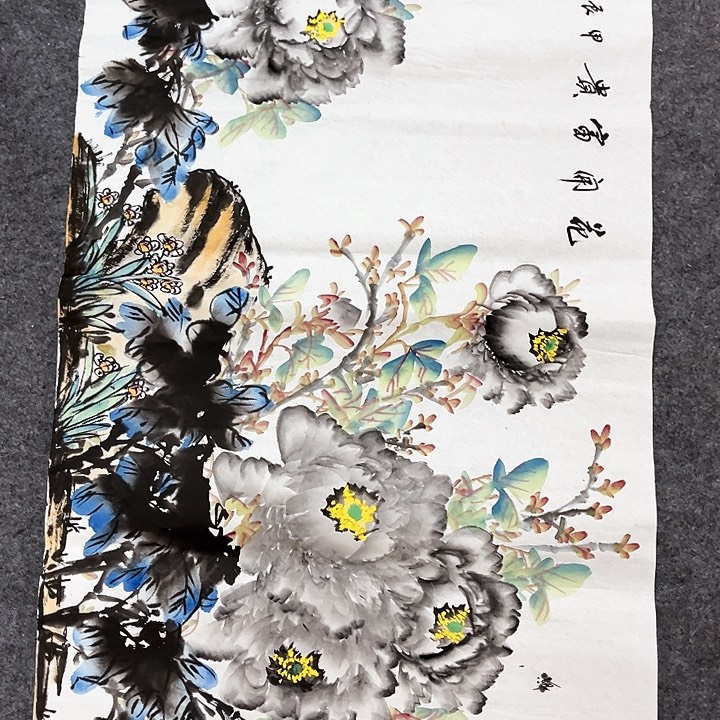 花開富貴
甲辰